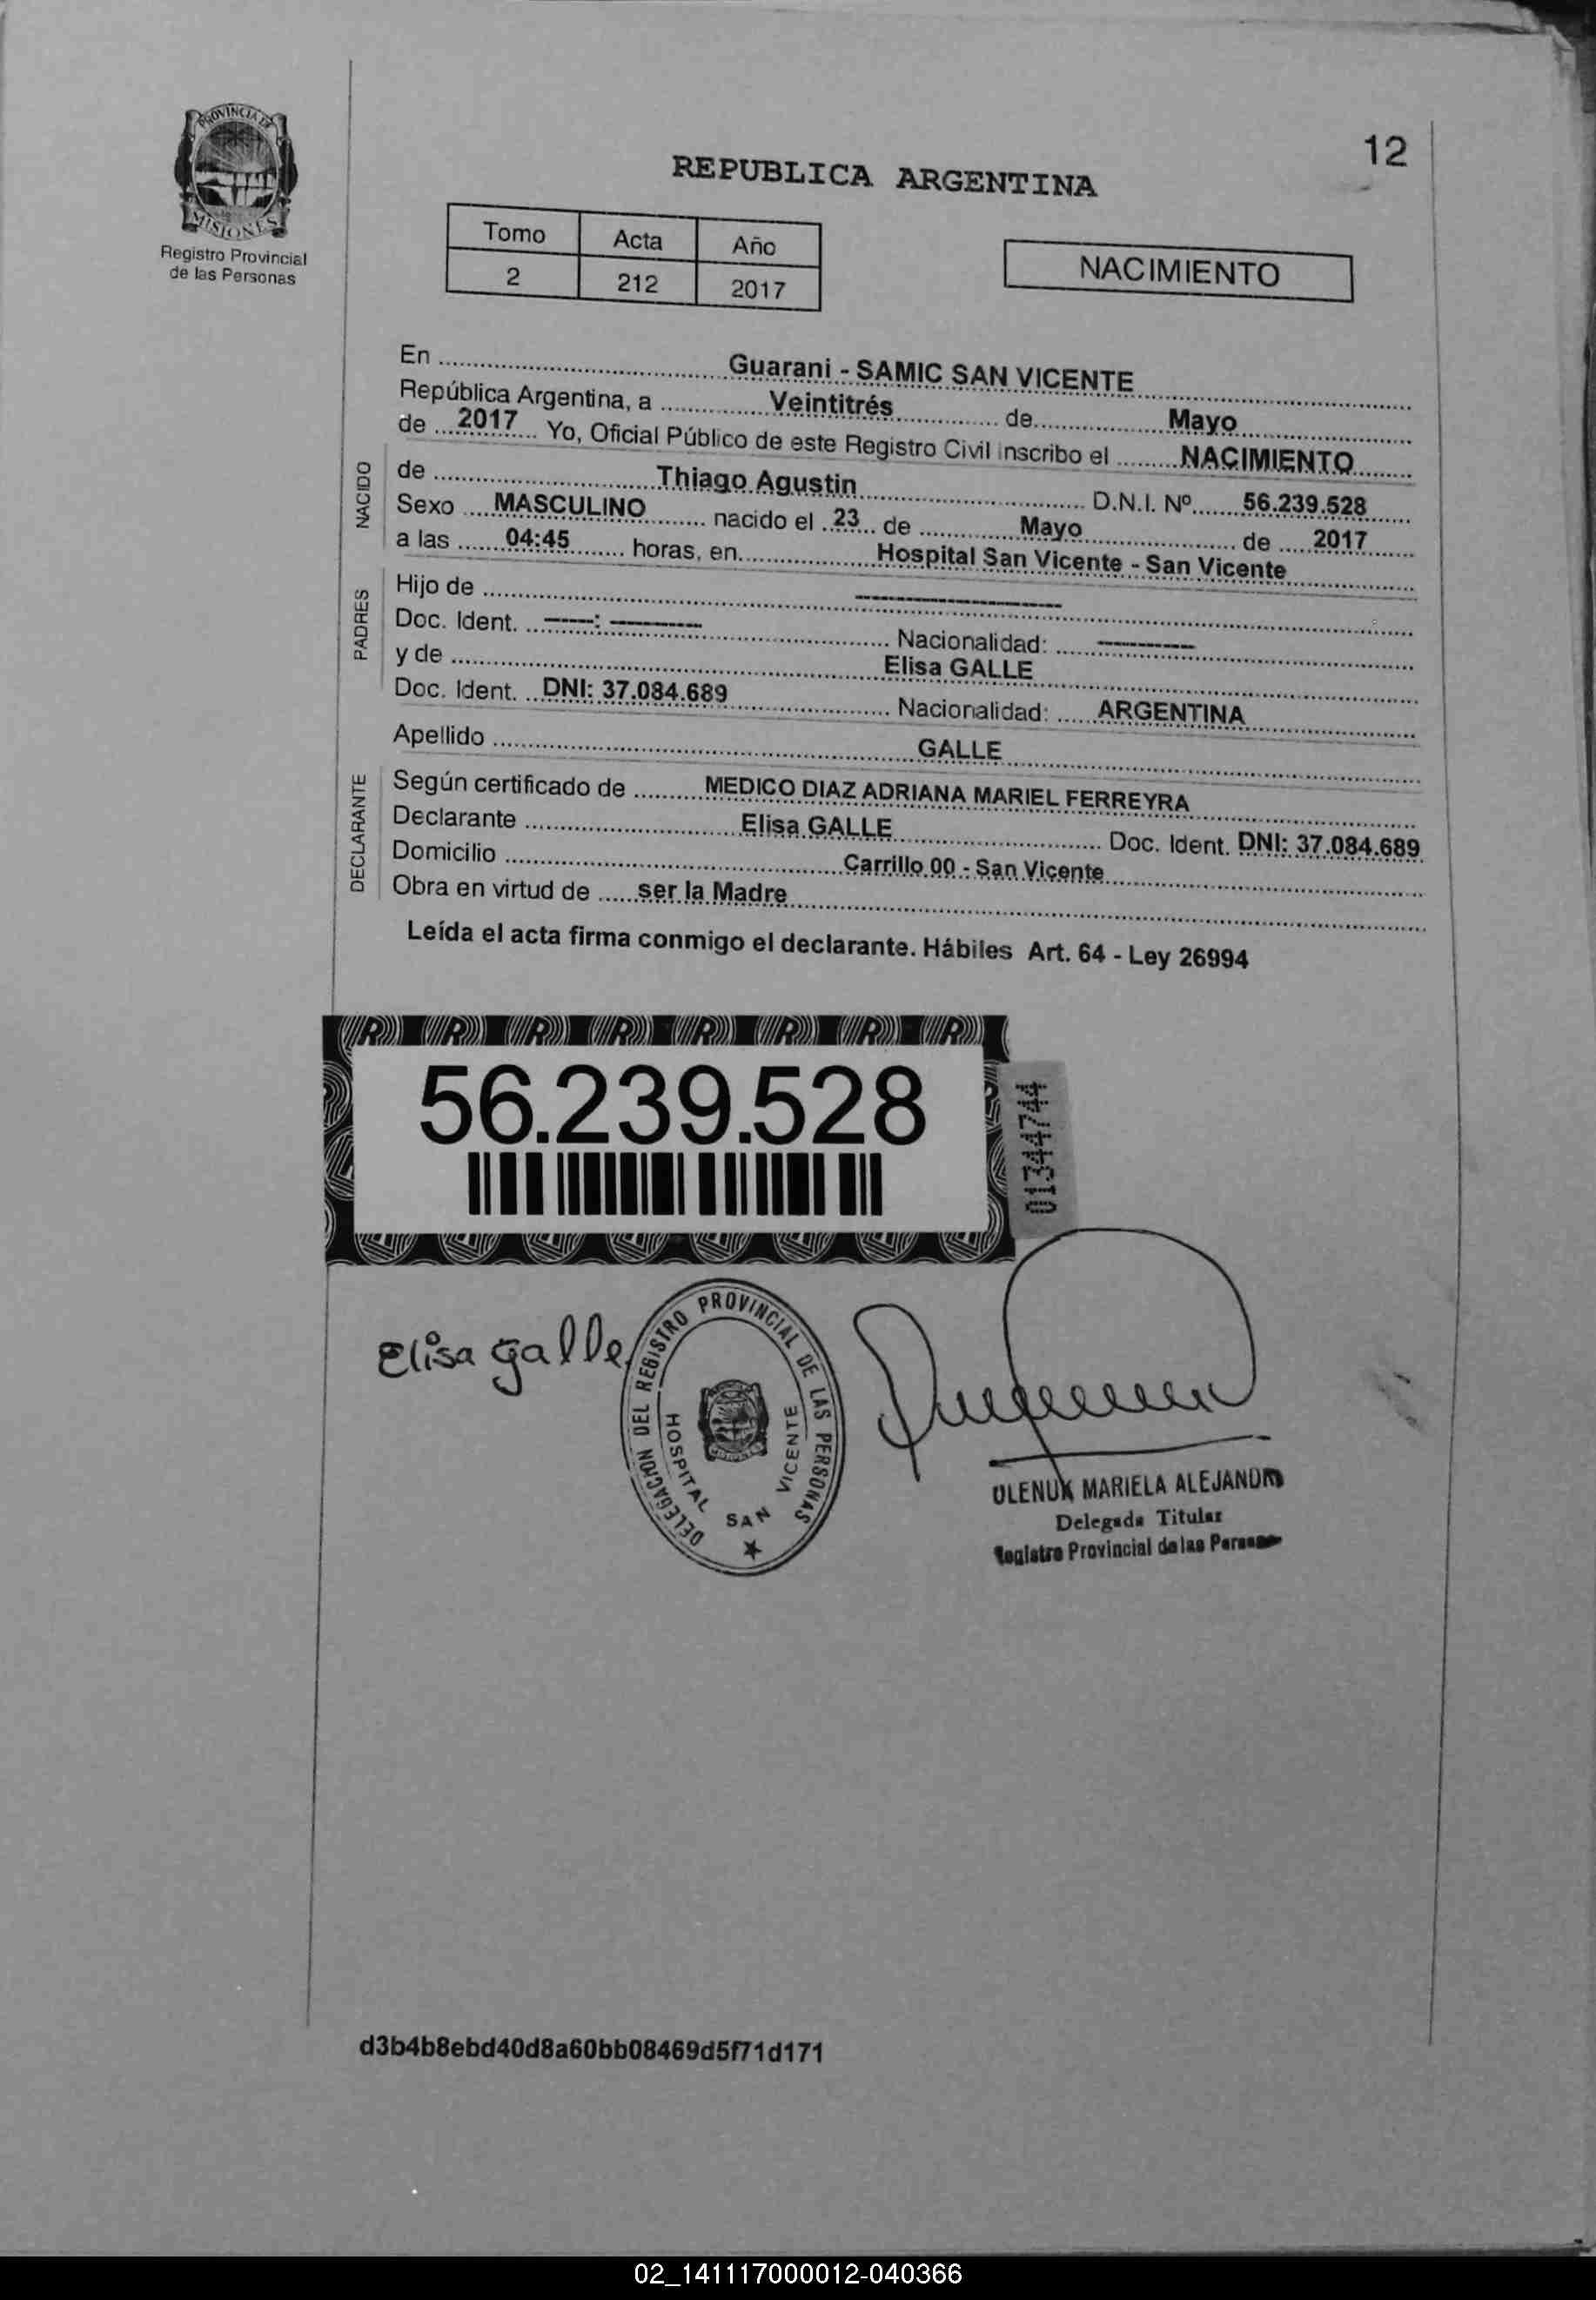 PROVINCIA DE
MISIONES
Registro Provincial
de las Personas
12
REPUBLICA ARGENTINA
Tomo Acta Año
2 212 2017
NACIMIENTO
En Guarani - SAMIC SAN VICENTE
República Argentina, a Veintitrés de Mayo
de 2017 Yo, Oficial Público de este Registro Civil inscribo el NACIMIENTO
NACIDO
de Thiago Agustin D.N.I. Nº 56.239.528
Sexo MASCULINO nacido el 23 de Mayo de 2017
a las 04:45 horas, en Hospital San Vicente - San Vicente
PADRES
Hijo de --------------------
Doc. Ident. -----: --------- Nacionalidad: ----------
y de Elisa GALLE
Doc. Ident. DNI: 37.084.689 Nacionalidad: ARGENTINA
Apellido GALLE
DECLARANTE
Según certificado de MEDICO DIAZ ADRIANA MARIEL FERREYRA
Declarante Elisa GALLE Doc. Ident. DNI: 37.084.689
Domicilio Carrillo 00 - San Vicente
Obra en virtud de ser la Madre
Leída el acta firma conmigo el declarante. Hábiles Art. 64 - Ley 26994
56.239.528
01344744
Elisa Galle
DELEGACION DEL REGISTRO PROVINCIAL DE LAS PERSONAS
HOSPITAL SAN VICENTE
OLENUK MARIELA ALEJANDRA
Delegada Titular
Registro Provincial de las Personas
d3b4b8ebd40d8a60bb08469d5f71d171
02_141117000012-040366